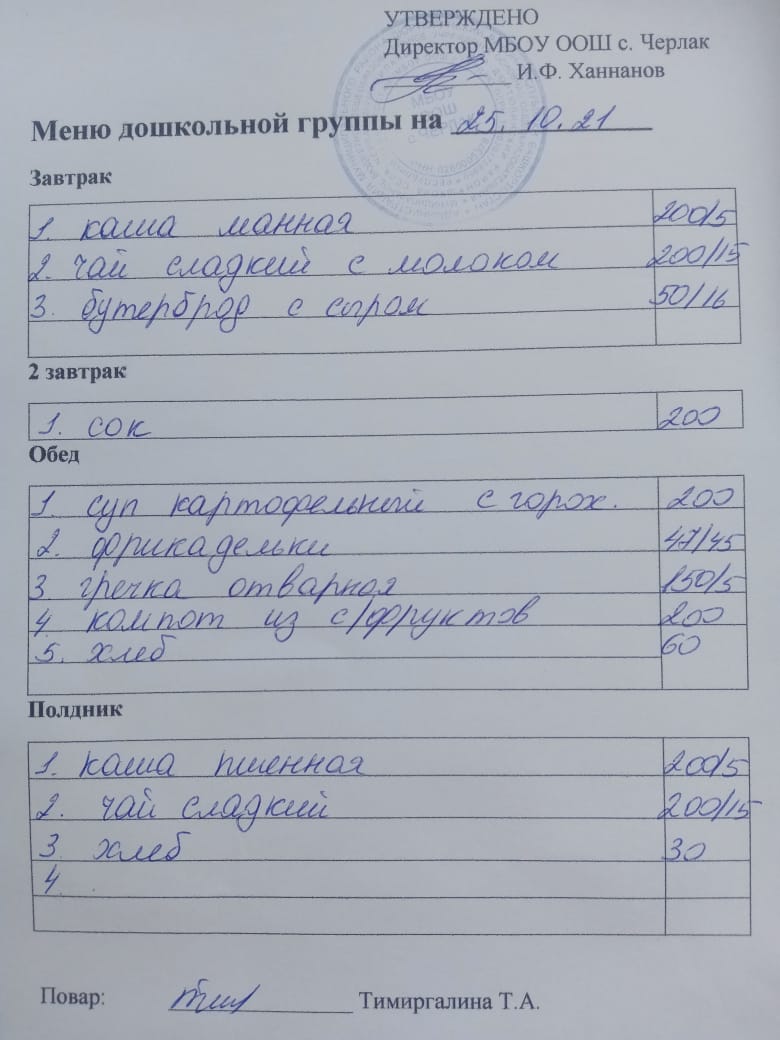 УТВЕРЖДЕНО
Директор МБОУ ООШ с. Черлак
И.Ф. Ханнанов
МБОУ
ООШ
с. ЧЕРЛАК
Меню дошкольной группы на 25. 10. 21
Завтрак
1. каша манная 200/5
2. чай сладкий с молоком 200/15
3. бутерброд с сыром 50/16
2 завтрак
1. сок 200
Обед
1. суп картофельный с горох. 200
2. фрикадельки 47/45
3 гречка отварная 150/5
4. компот из с/фруктов 200
5. хлеб 60
Полдник
1. каша пшенная 200/5
2. чай сладкий 200/15
3. хлеб 30
4.
Повар: Тимиргалина Т.А.